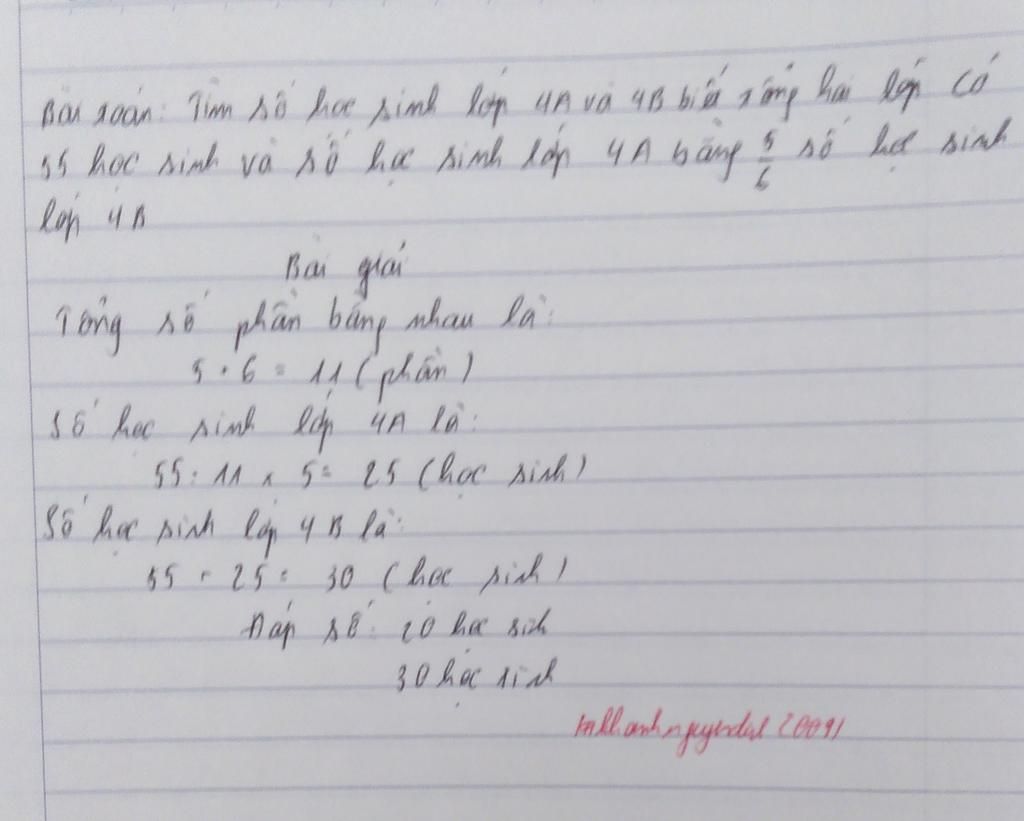 Bài toán: Tìm số học sinh lớp 4A và 4B biết tổng hai lớp có
55 học sinh và số học sinh lớp 4A bằng 5/6 số học sinh
lớp 4B
Bài giải
Tổng số phần bằng nhau là:
5 + 6 = 11 (phần)
Số học sinh lớp 4A là:
55 : 11 x 5 = 25 (học sinh)
Số học sinh lớp 4B là:
55 - 25 = 30 (học sinh)
Đáp số: 20 học sinh
30 học sinh